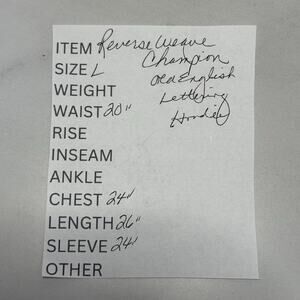 ITEM Reverse Weave
Champion
SIZE L
Old English
WEIGHT
Lettering
WAIST 20"
Hoodie
RISE
INSEAM
ANKLE
CHEST 24"
LENGTH 26"
SLEEVE 24"
OTHER